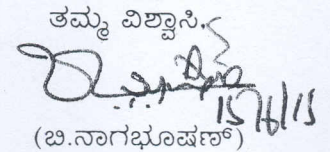 ತಮ್ಮ ವಿಶ್ವಾಸಿ,
15/6/15
(ಬಿ.ನಾಗಭೂಷಣ್)